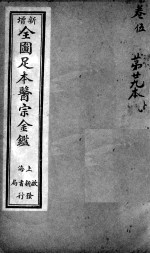 新增
全圖足本醫宗金鑑
上海
啟新書局
發行
卷伍
第廿九本